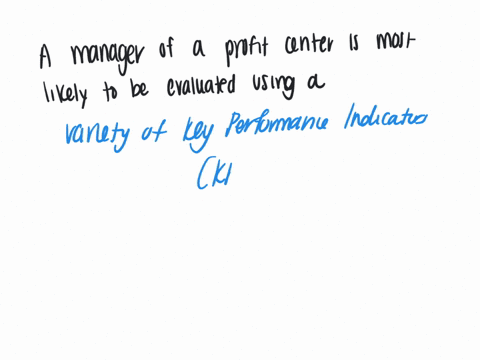 A manager of a profit center is most
likely to be evaluated using a
variety of key Performance Indicators
(KP